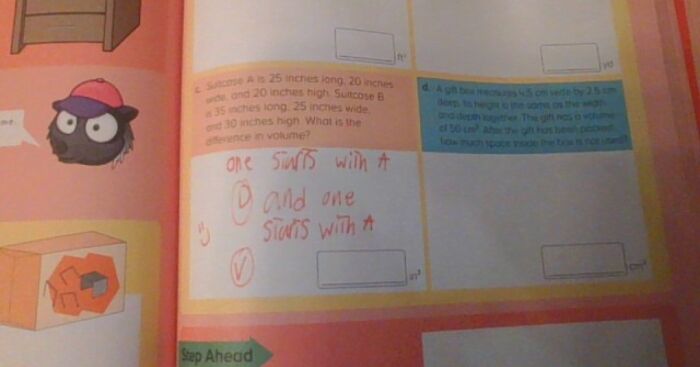 me.
ft³
yd
c. Suitcase A is 25 inches long, 20 inches
wide, and 20 inches high. Suitcase B
is 35 inches long, 25 inches wide,
and 30 inches high. What is the
difference in volume?
d. A gift box measures 4.5 cm wide by 2.5 cm
deep. Its height is the same as the width
and depth together. The gift has a volume
of 50 cm³. After the gift has been packed,
how much space inside the box is not used?
one starts with A
D and one
starts with A
V
in³
cm³
Step Ahead